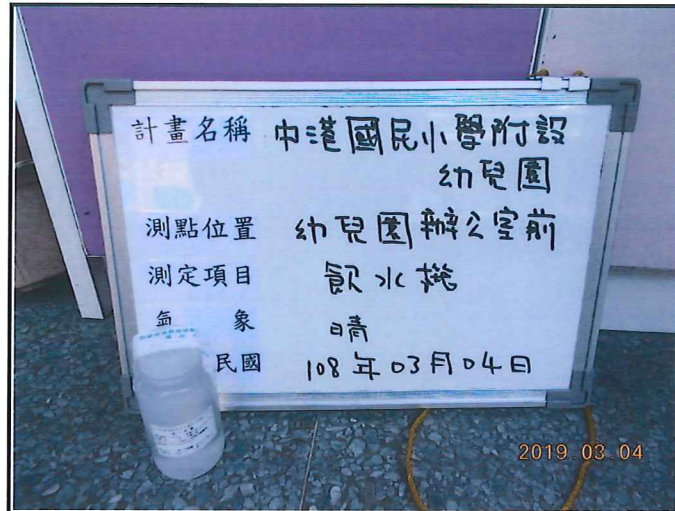 計畫名稱 中港國民小學附設
幼兒園
測點位置 幼兒園辦公室前
測定項目 飲水機
氣 象 晴
民國 108年03月04日
2019 03 04